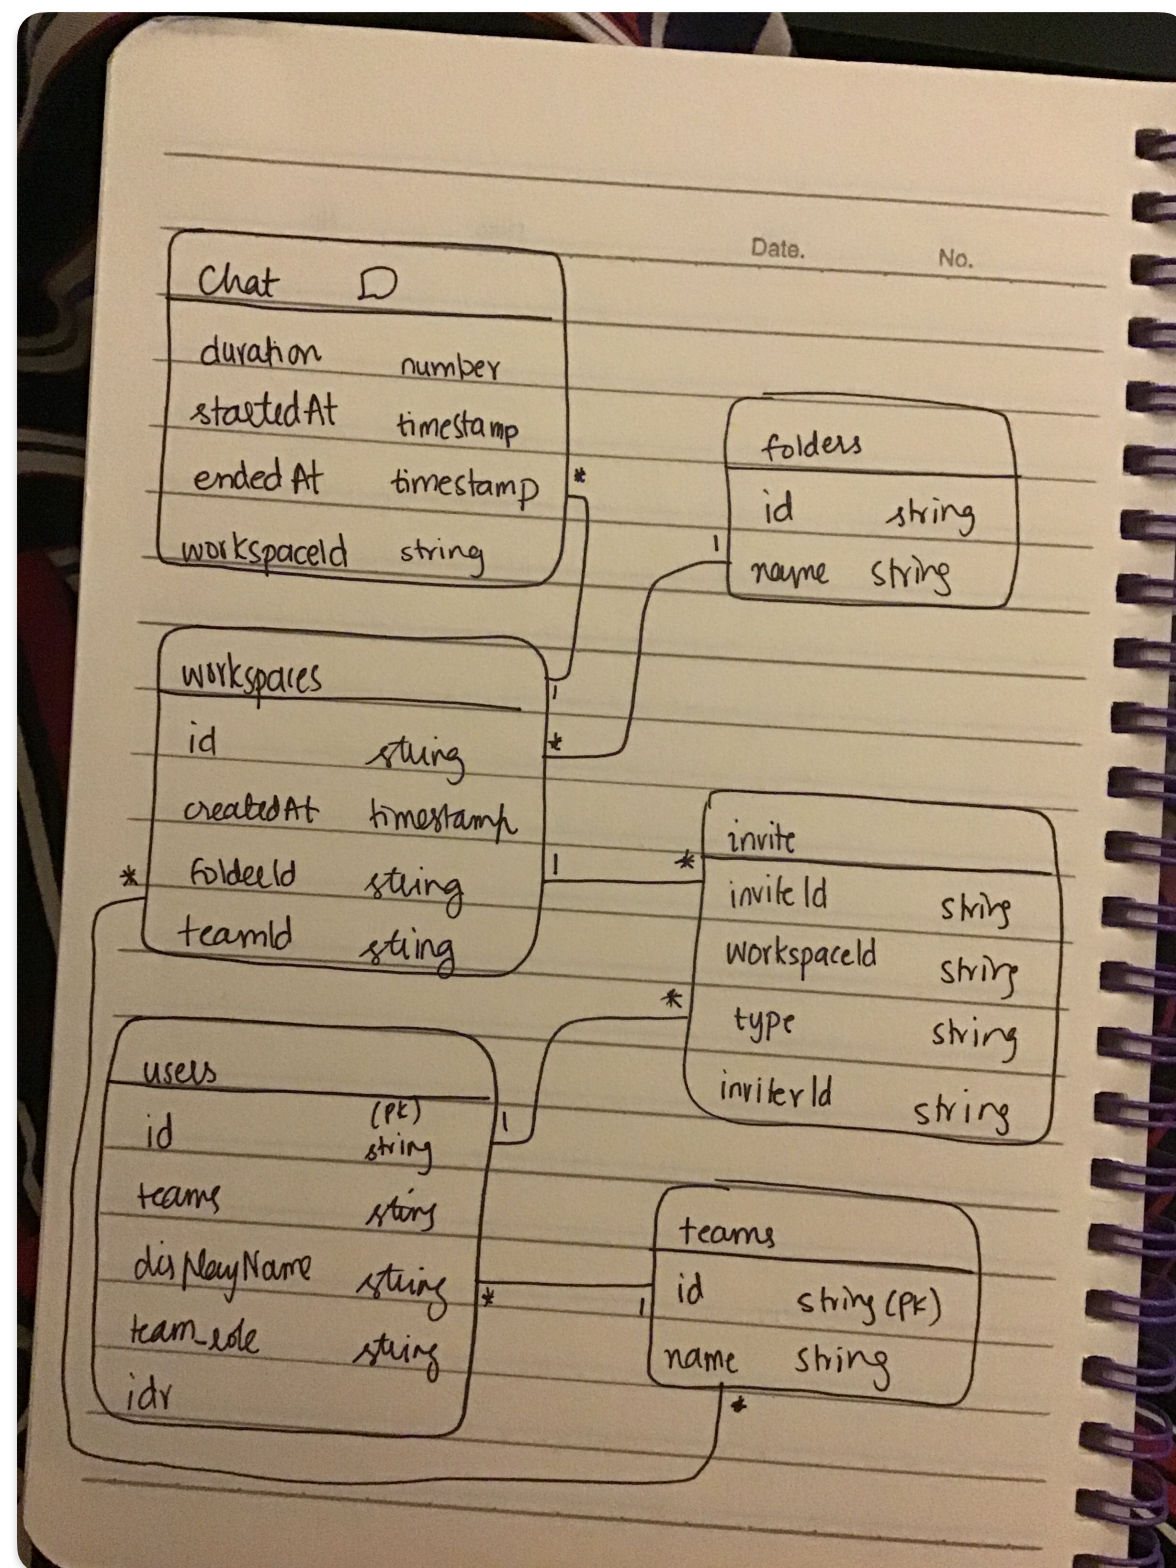 Date. No.
Chat
duration number
startedAt timestamp
endedAt timestamp
*
workspaceId string
folders
id string
1
name string
workspaces
1
id string
*
createdAt timestamp
folderId string
1
*
teamId string
*
invite
*
inviteId string
workspaceId string
type string
*
inviterId string
users
id (pk)
string
1
teams string
displayName string
*
team_role string
idr
teams
id string (pk)
1
name string
*